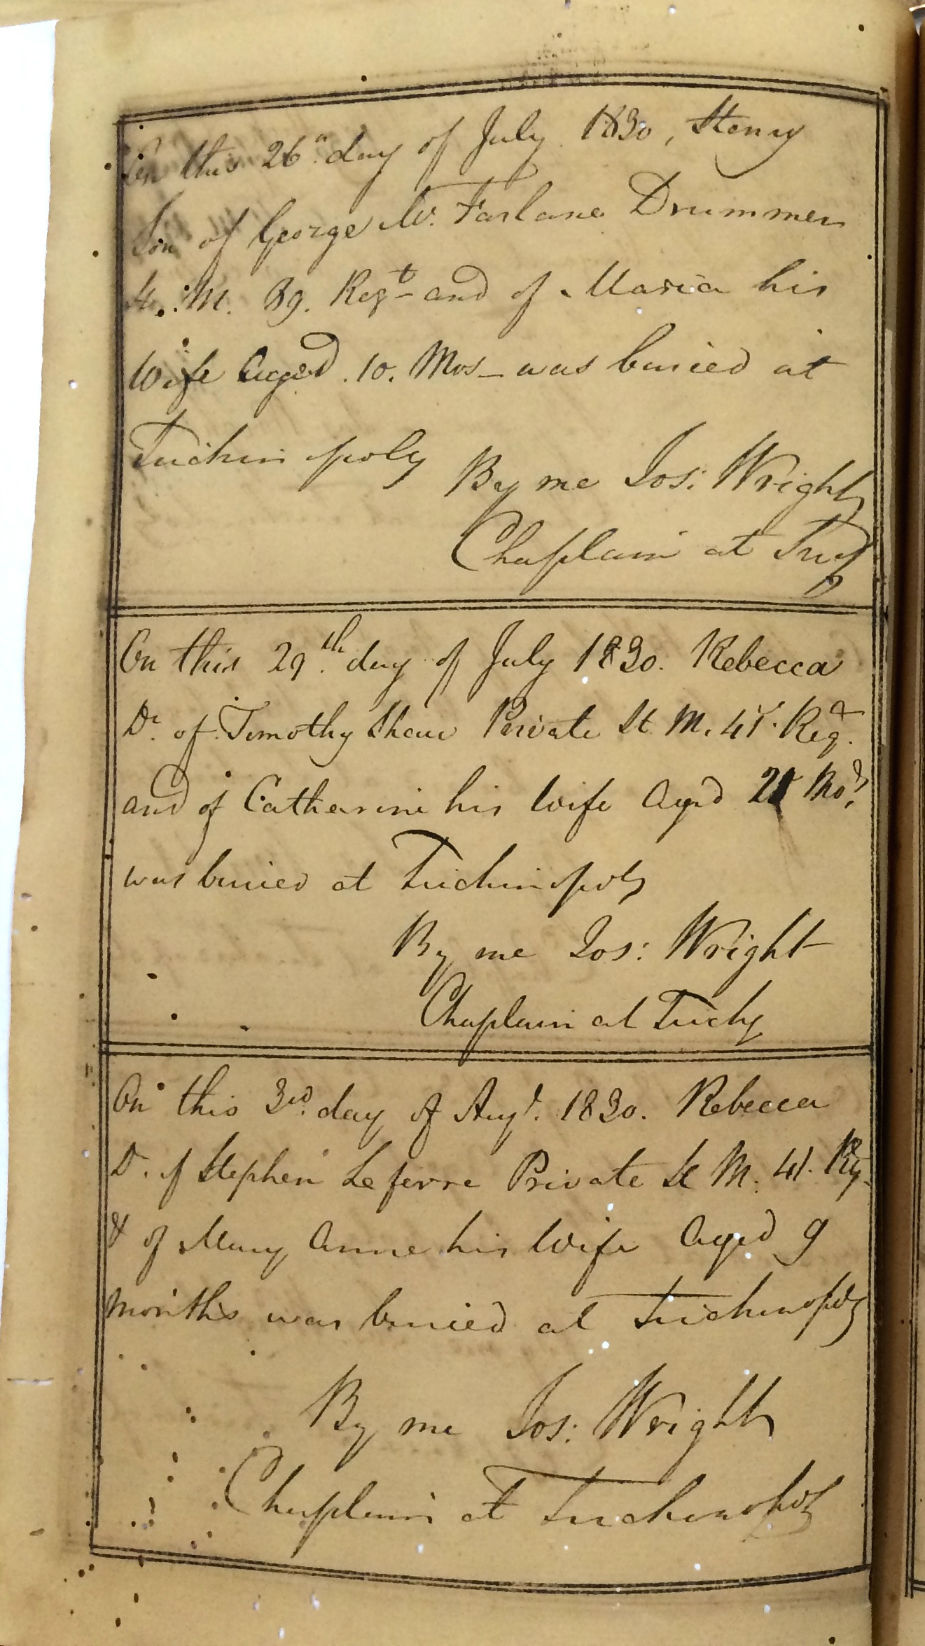 On this 26th day of July 1830, Henry
Son of George Mc. Farlane Drummer
H. M. 89. Regt and of Maria his
Wife Aged .10. Mos - was buried at
Trichinopoly
By me Jos: Wright
Chaplain at Trichy
On this 29th. day of July 1830. Rebecca
Dr. of Timothy Shaw Private H. M. 41. Regt.
and of Catherine his Wife Aged 21 Mos.
was buried at Trichinopoly
By me Jos: Wright
Chaplain at Trichy
On this 3rd. day of Augt. 1830. Rebecca
D. of Stephen Lefevre Private H M. 41. Rgt.
& of Mary Anne his Wife Aged 9
months was buried at Trichinopoly
By me Jos: Wright
Chaplain at Trichinopoly